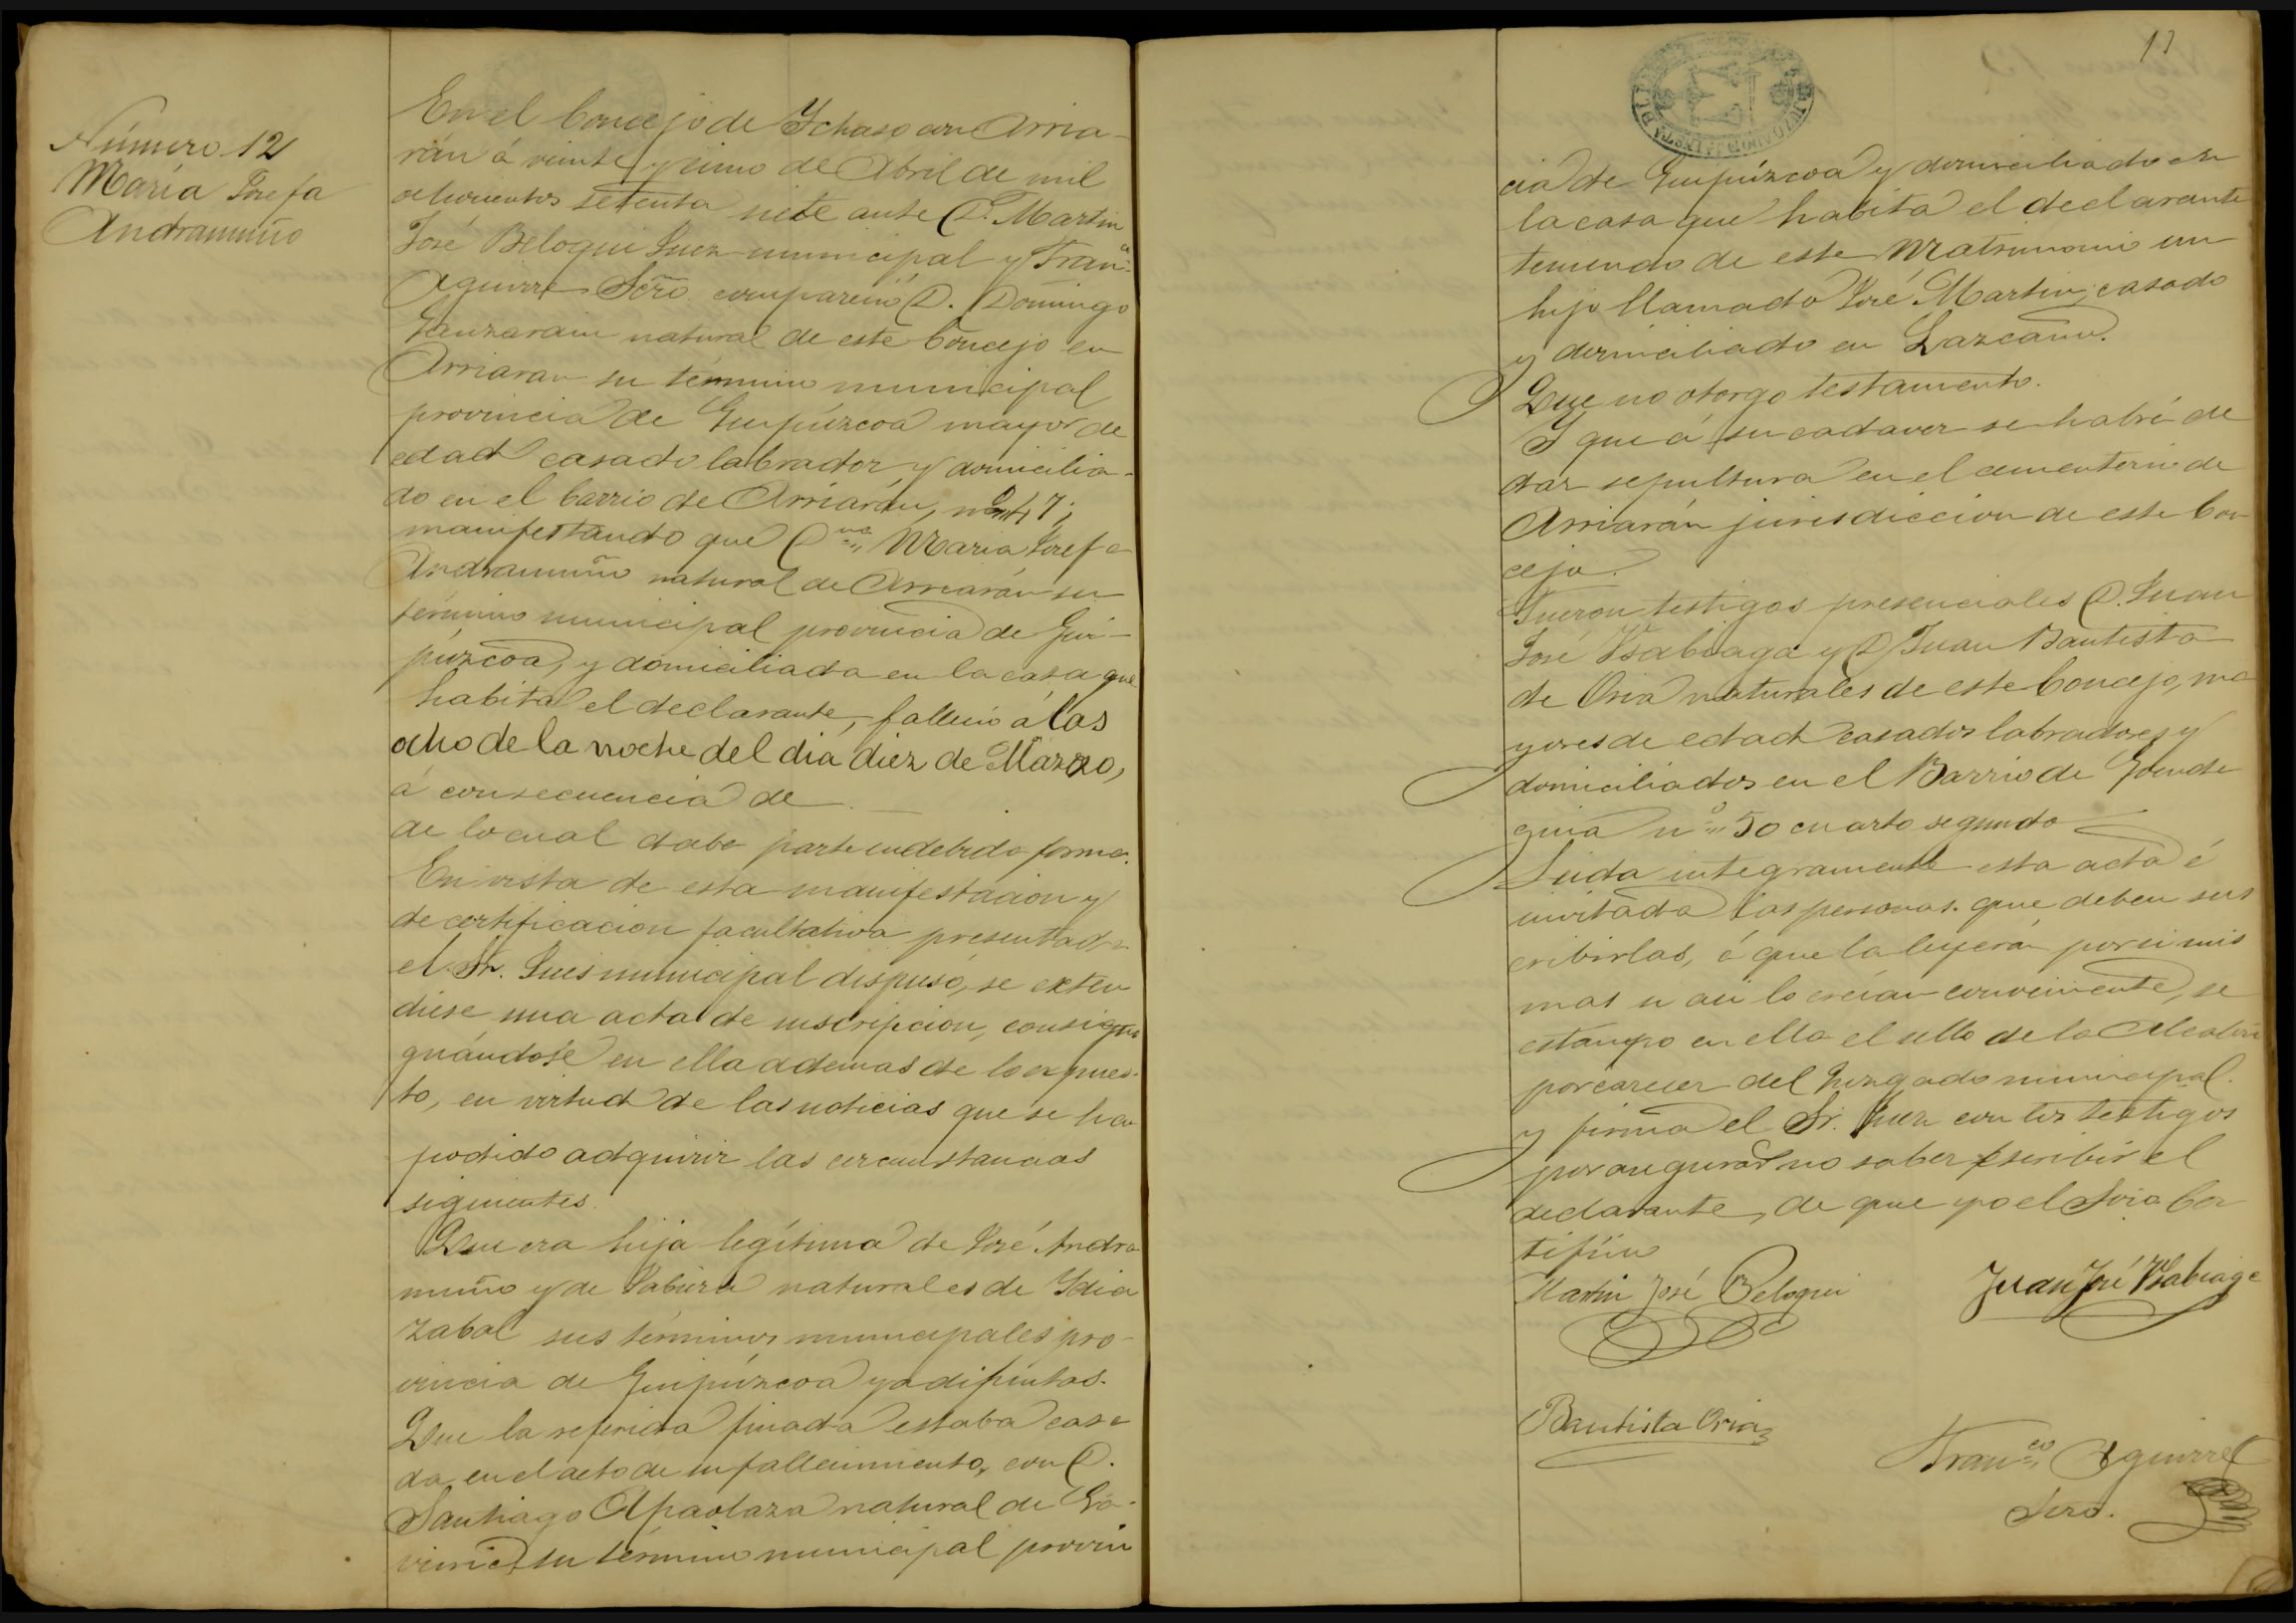 Número 12
María Josefa
Andramuño
En el Concejo de Ychaso con Arria-
rán á veinte y uno de Abril de mil
ochocientos setenta siete ante D. Martin
José Beloqui Juez municipal y Fran.co
Aguirre Scro. compareció D. Domingo
natural de este Concejo en
Arriaran su término municipal
provincia de Guipúzcoa mayor de
edad casado labrador y domicilia-
do en el barrio de Arriarán, nº 47;
manifestando que Dna Maria Josefa
Andramuño natural de Arriarán su
término municipal provincia de Gui-
púzcoa, y domiciliada en la casa que
habita el declarante, falleció á las
ocho de la noche del dia diez de Marzo,
á consecuencia de
de lo cual daba parte en debida forma.
En vista de esta manifestacion y
de certificacion facultativa presentada
el Sr. Jues municipal dispuso, se exten
diese una acta de inscripcion, consig
gnándose en ella ademas de lo expues-
to, en virtud de las noticias que se han
podido adquirir las circunstancias
siguientes.
Que era hija legítima de José Andra
muño y de natural es de Ydia
zabal sus términos municipales pro-
vincia de Guipúzcoa ya difuntos.
Que la referida finada estaba casa
da, en el acto de su fallecimiento, con D.
Santiago Apaolaza natural de Ga-
viria su término municipal provin
13
cia de Guipúzcoa y domiciliado en
la casa que habita el declarante
teniendo de este Matrimonio un
hijo llamado José Martin, casado
y domiciliado en Lazcano.
Que no otorgo testamento.
Y que á su cadaver se habrá de
dar sepultura en el cementerio de
Arriarán jurisdiccion de este Con
cejo.
Fueron testigos presenciales D. Juan
José Ysabiaga y D Juan Bautista
de Oria naturales de este Concejo, ma
yores de edad casados labradores y
domiciliados en el Barrio de
nº 50 cuarto segundo
Leida integramente esta acta é
invitada las personas que deben sus
cribirlas, á que la leyerán por si mis
mas si asi lo creían conveniente, se
estampo en ella el sello de la Alcaldia
por carecer del Juzgado municipal.
y firma el Sr. Juez con los testigos
por asegurar no saber escribir el
declarante, de que yo el Srio Cer
tifico
Martin José Beloqui
Juan José Ysabiaga
Bautista Oria
Fran.co Aguirre
Scro.